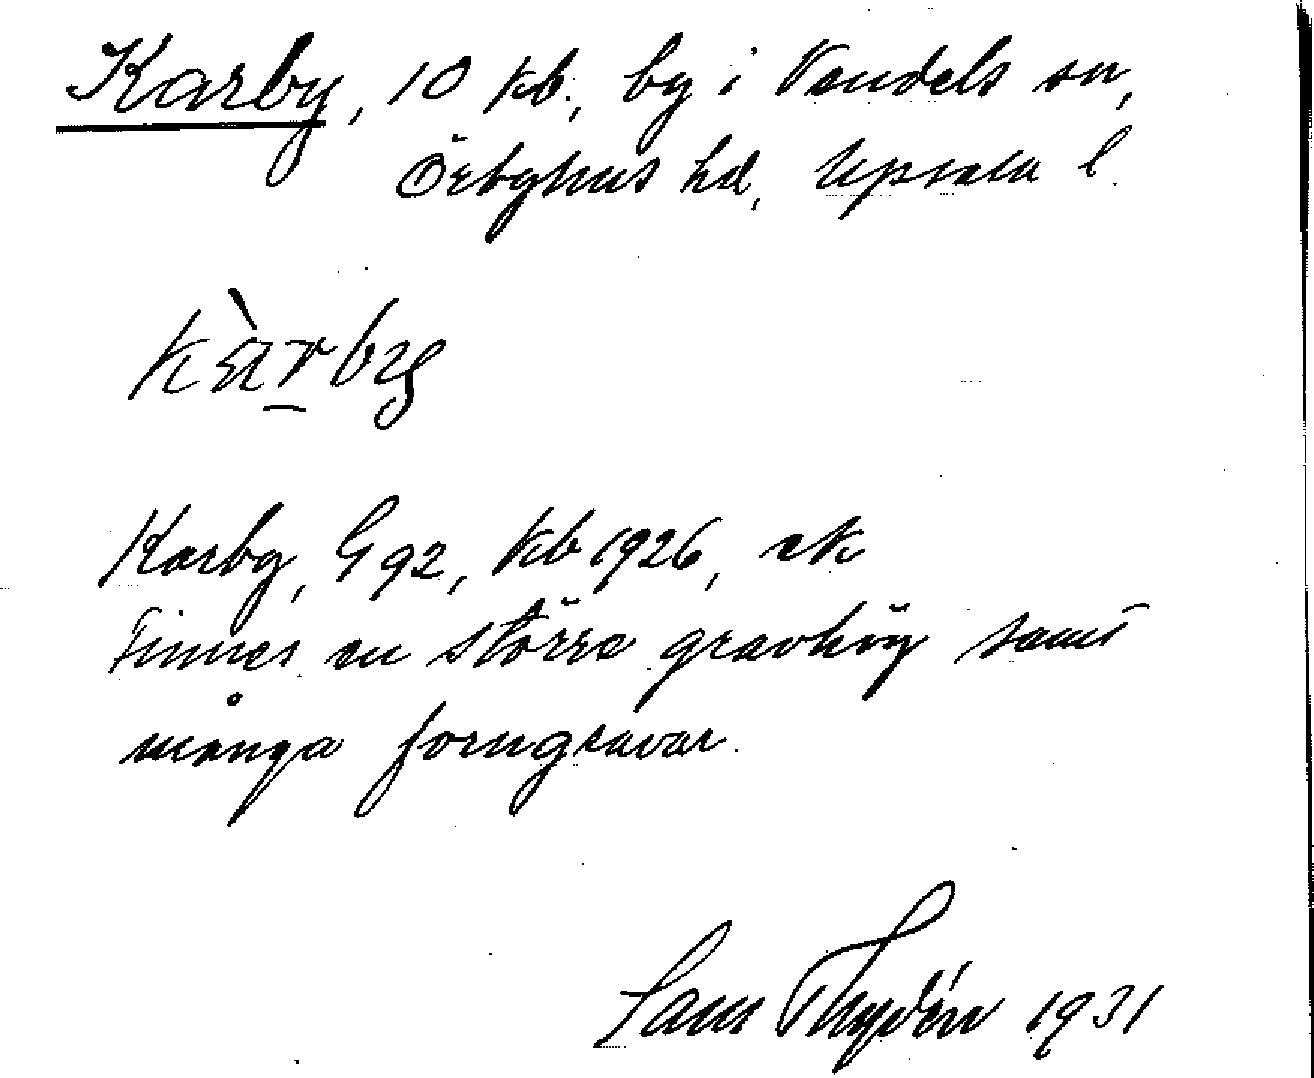 Karby, 10 kb., by i Vendels sn,
Örbyhus hd, Upsala l.
kàrby
Karby, G 92, kb 1926, ek
Finnes en större gravhög samt
många forngravar.
Sam Thydén 1931